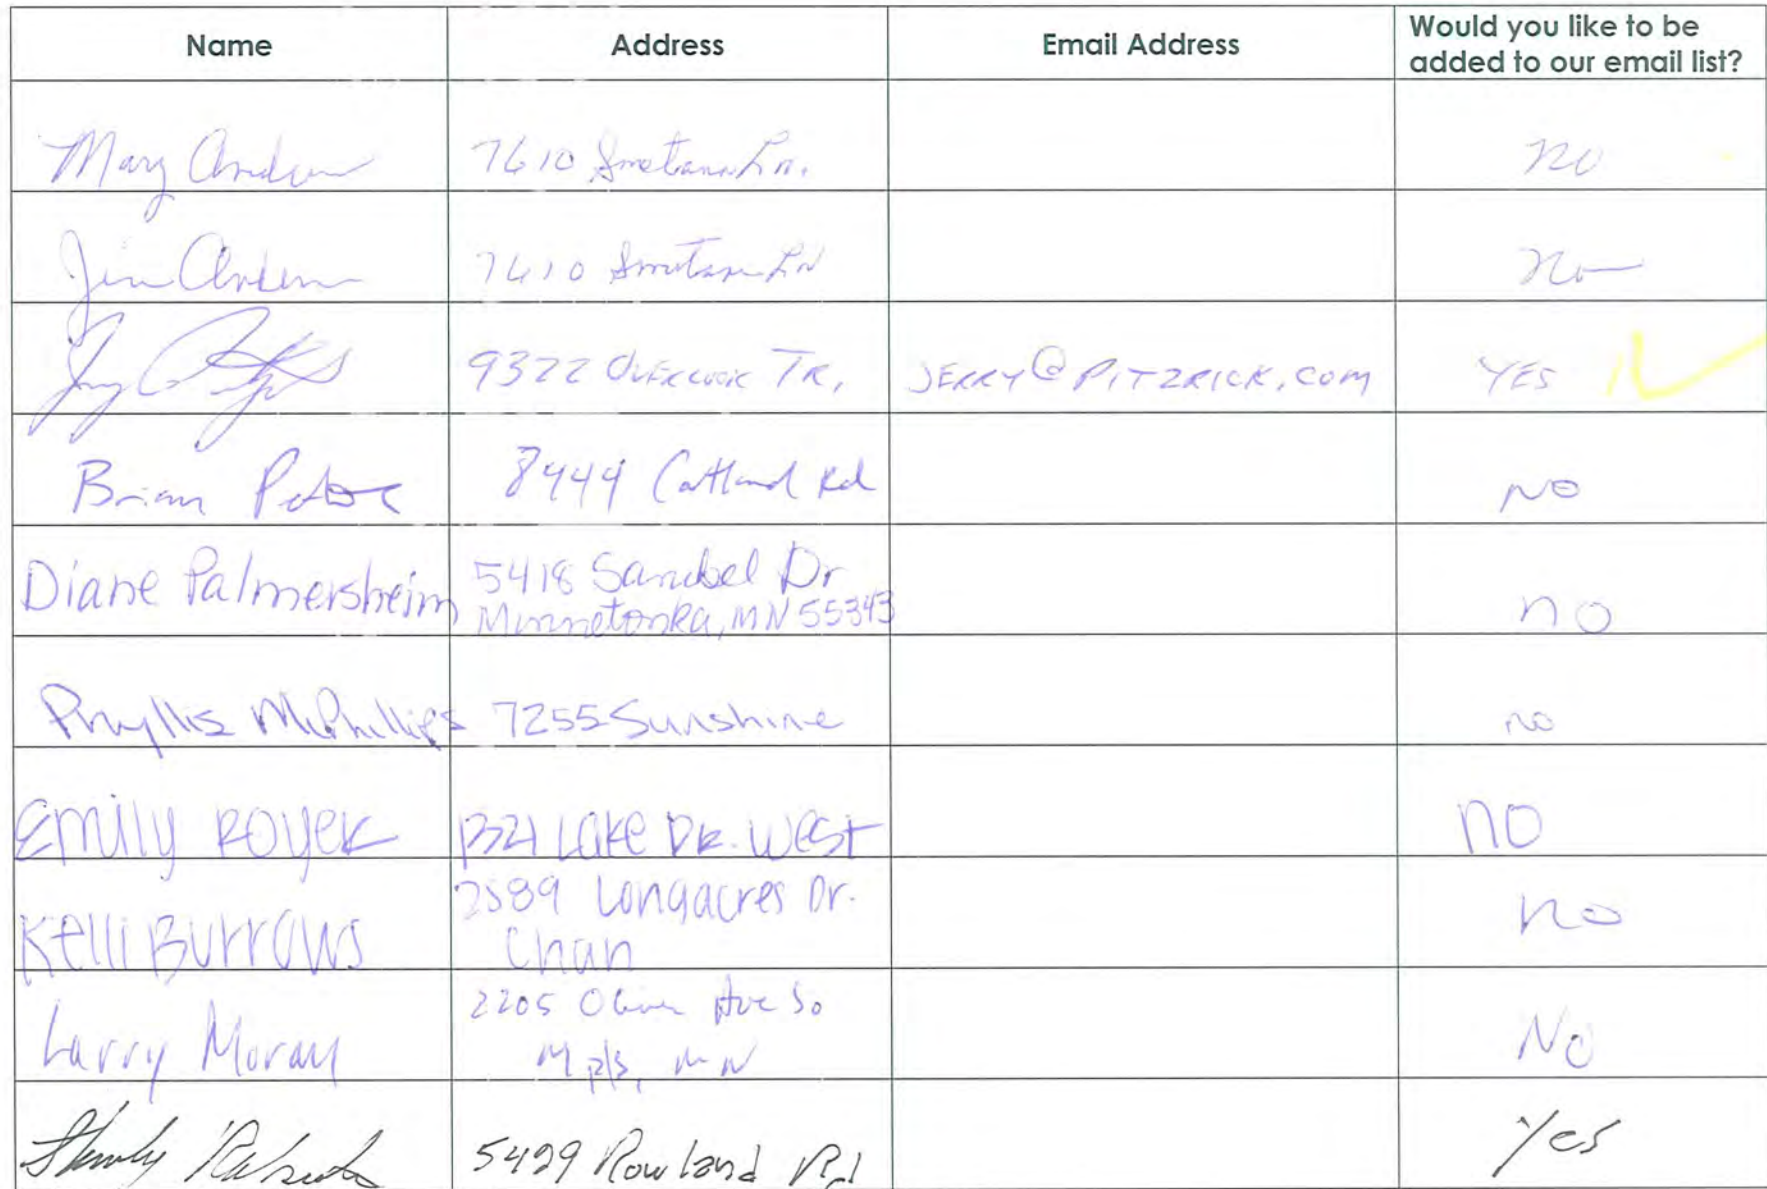 Name Address Email Address Would you like to be
added to our email list?
Mary 7610 Smetana Ln. no
Jim 7610 Smetana Ln no
9322 OVERLOOK TR. JERRY@PITZRICK.COM YES
Brian 8444 Rd NO
Diane Palmersheim 5418 Sanibel Dr
Minnetonka, MN 55343 no
Phyllis McPhillips 7255 Sunshine no
Emily Royer 1321 Lake Dr. West no
Kelli Burrows 2589 Longacres Dr.
Chan no
Larry Moran 2205 Ave So
Mpls, MN No
5429 Rowland Rd Yes